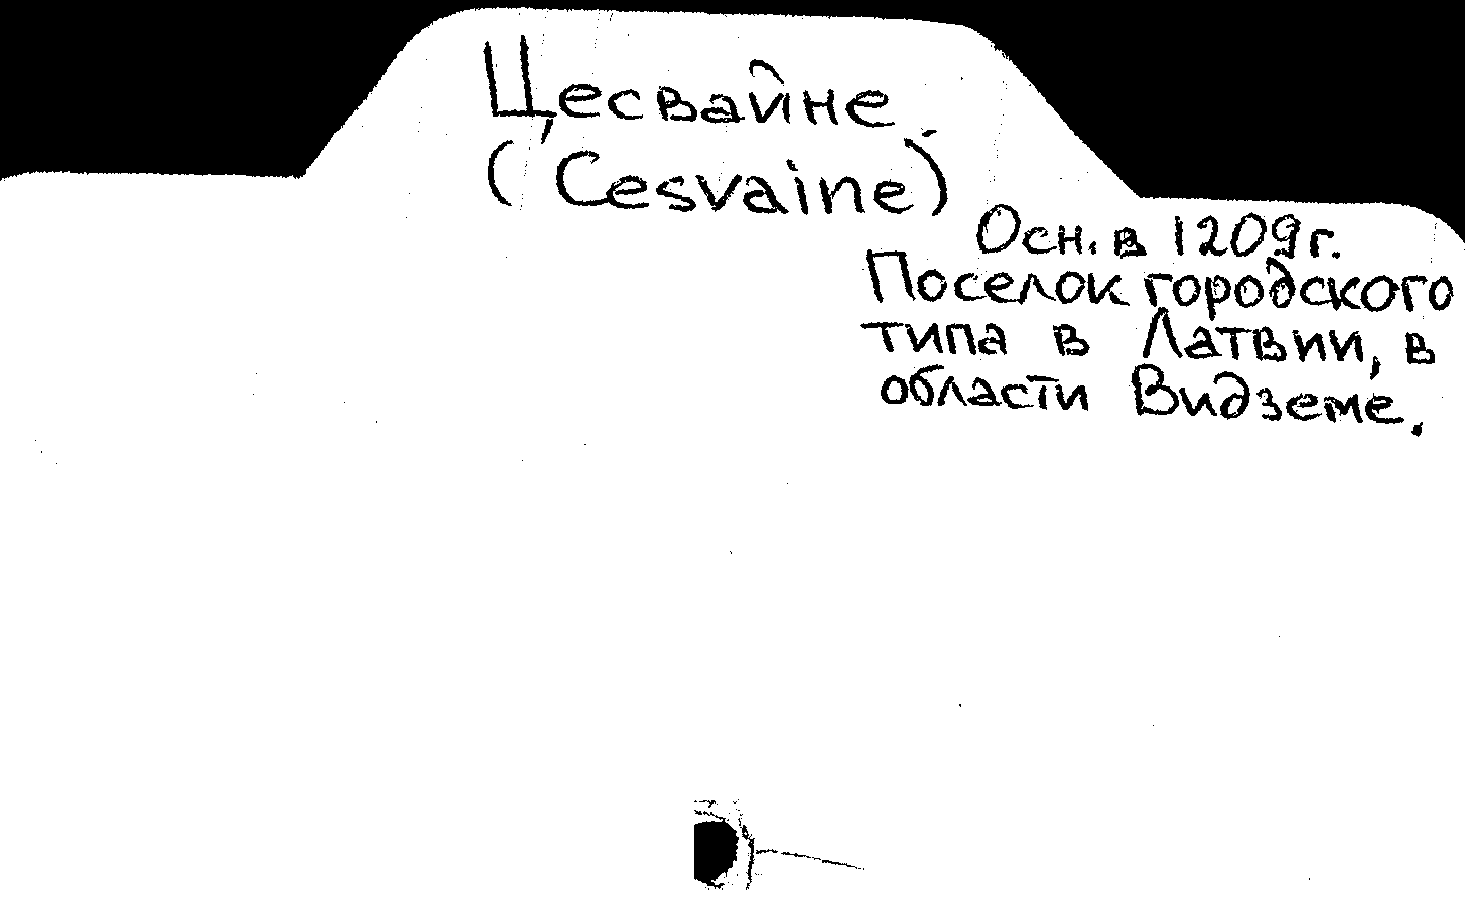 Цесвайне
(Cesvaine)
Осн. в 1209г.
Поселок городского
типа в Латвии, в
области Видземе.